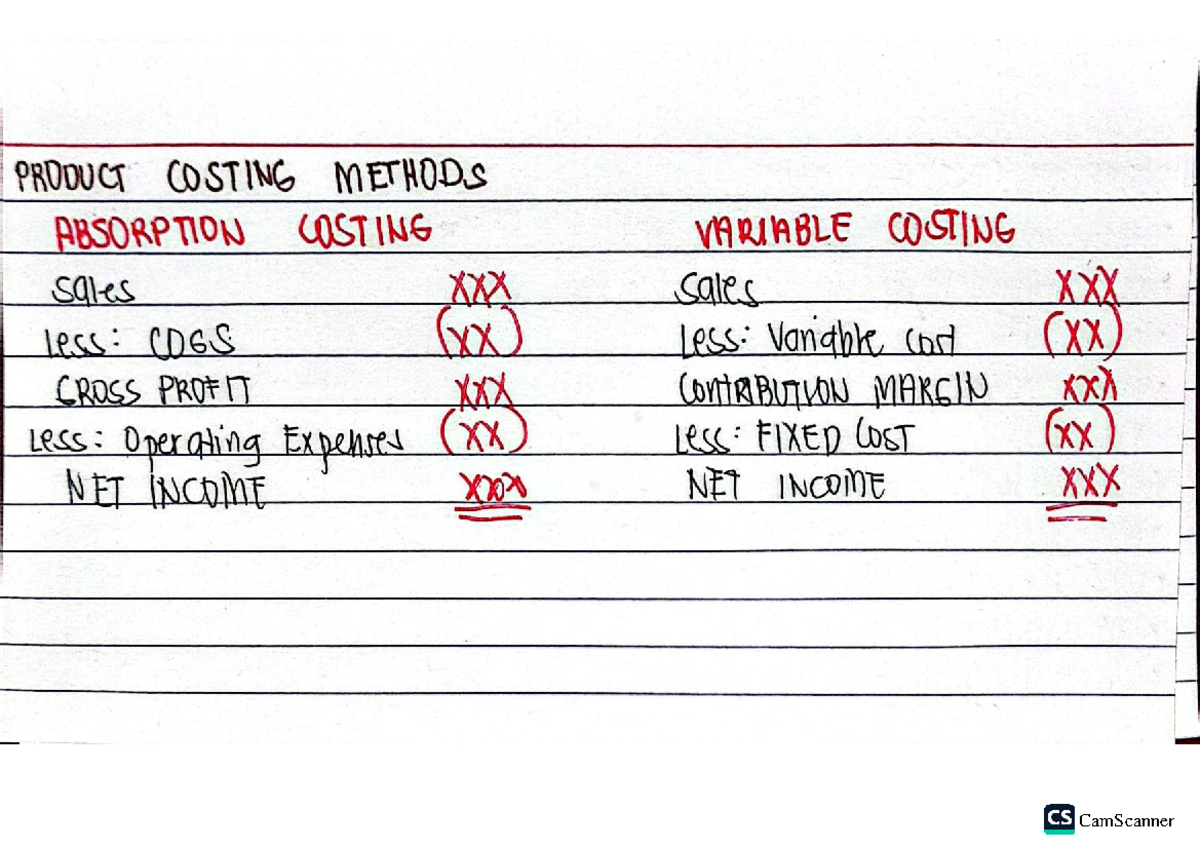 PRODUCT COSTING METHODS
ABSORPTION COSTING VARIABLE COSTING
Sales XXX Sales XXX
Less: COGS (XX) Less: Variable Cost (XX)
GROSS PROFIT XXX CONTRIBUTION MARGIN XXX
Less: Operating Expenses (XX) Less: FIXED COST (XX)
NET INCOME XXX NET INCOME XXX
CS CamScanner